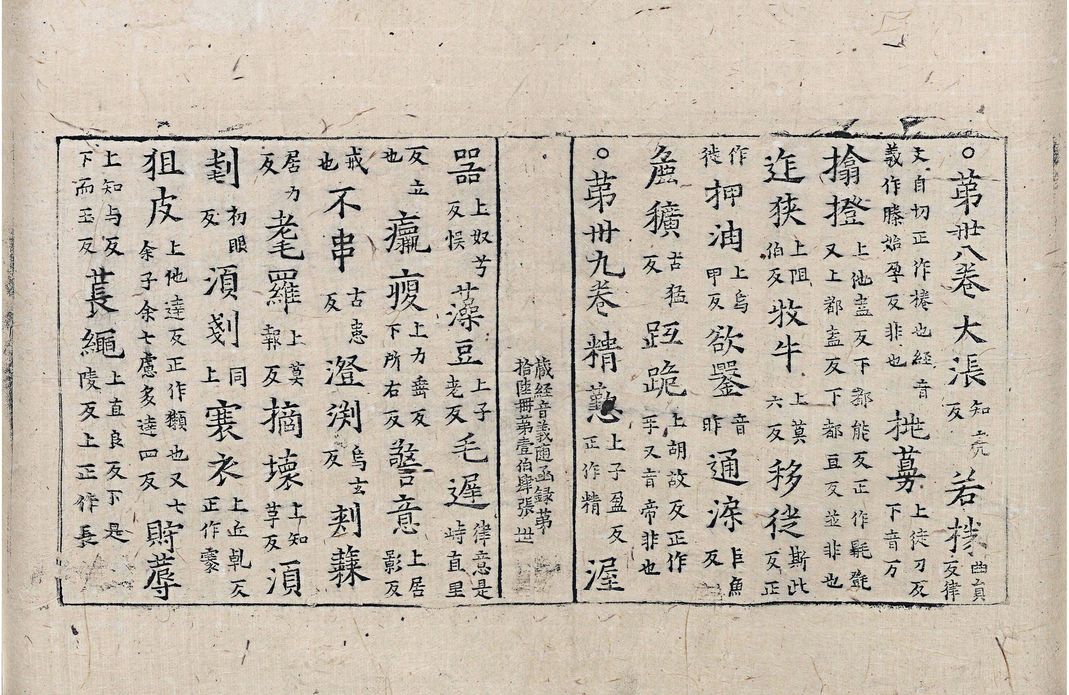 ○第卅八卷 大漲知亮反 若攕曲員反律
文自切正作棬也經音義作㯢始孕反非也 扡蕚上徒刀反下音万
搚㨟上他盍反下都能反正作㲪㲪又上都盍反下都亘反並非也
迮狹上阻伯反 牧牛上莫六反 移徙斯此反正
作徙 押油上烏甲反 欲鑿音昨 通渿乍魚反
麁獷古猛反 䟘跪上胡故反正作𠀤又音帝非也
○第卅九卷 精懃上子盈反正作精 渥
藏經音義隨函録第拾陸冊第壹伯肆張 丗
噐上奴兮反悮 藻豆上子老反 毛遟律意是峙直里
反立也 羸瘦上力垂反下所右反 警意上居影反
戒也 不串古患反 澄渕烏玄反 剗蘇
居力反 耄羅上莫報反 摘壞上知革反 湏
剗初眼反 湏剗同上 裹衣上丘乹反正作褰
狙皮上他達反正作獺也又七余子余七慮多達四反 貯蓐
上知与反下而玉反 萇繩上直良反下是陵反上正作長